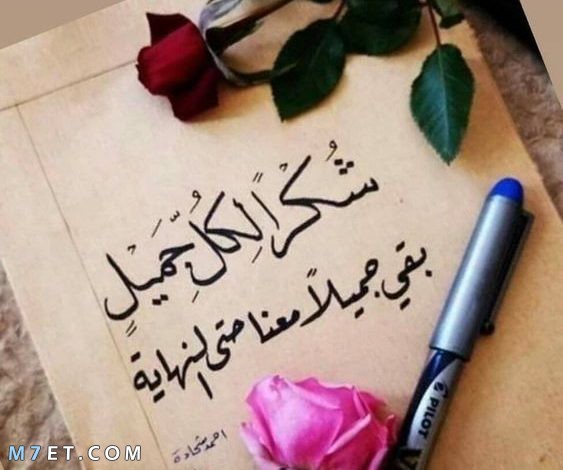 شُكْراً لِكُلِّ جَّمَيلٍ
بقي جميلاً معنا حتى النهاية
احمد شحادة
PILOT
V
M7ET.COM